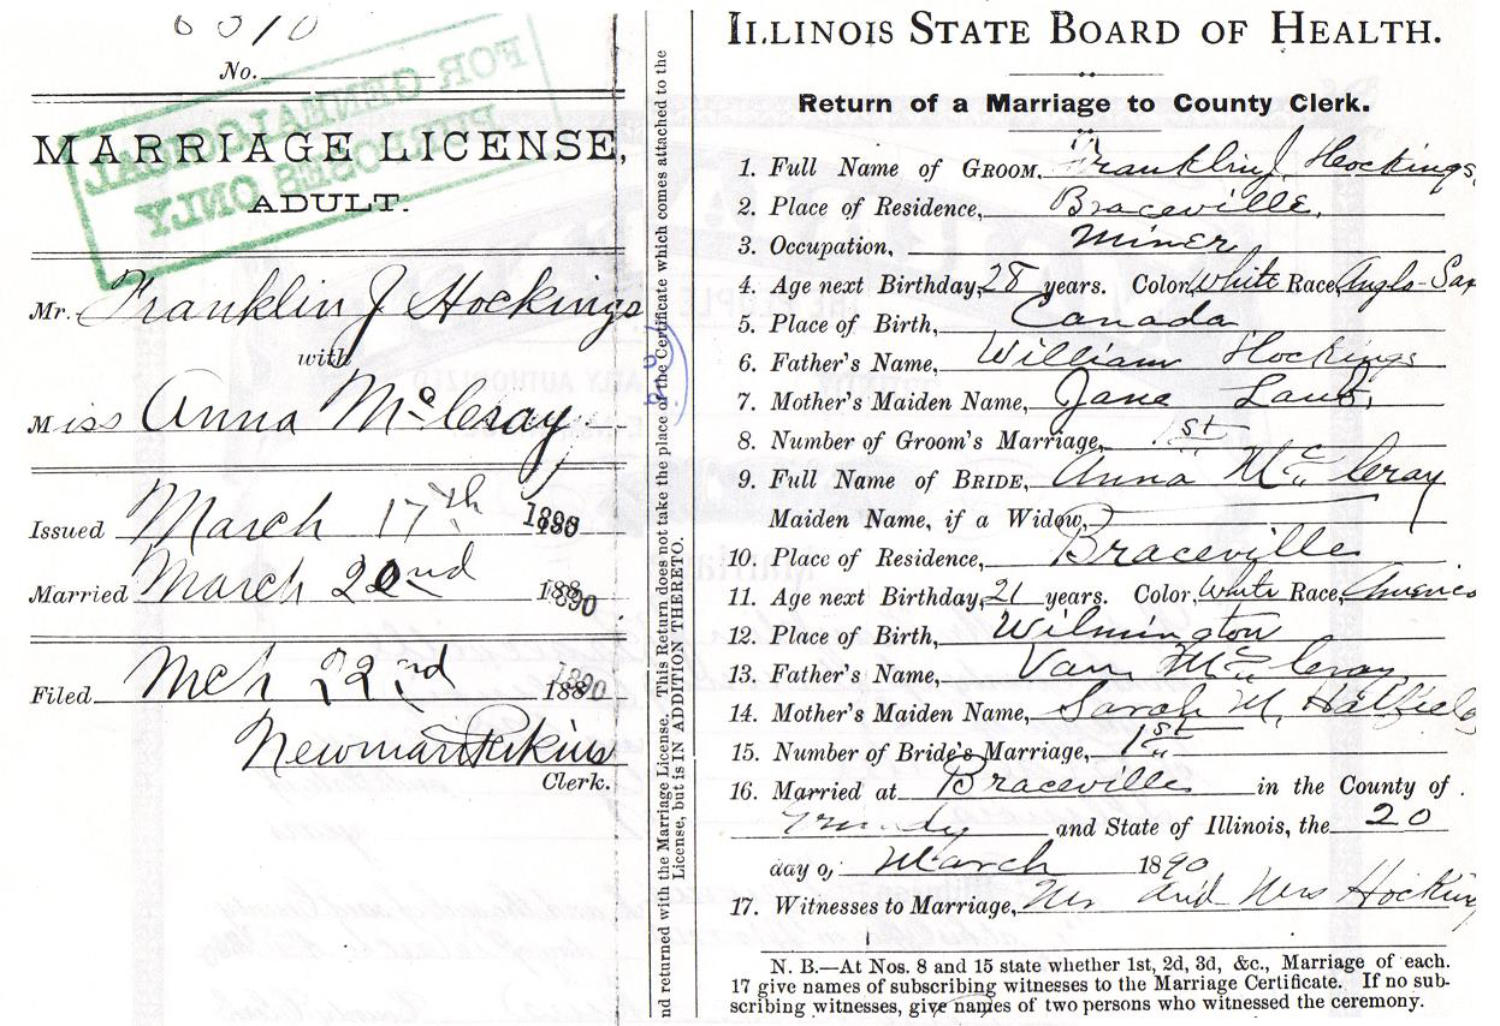 6310
No.
FOR GENEALOGICAL
PURPOSES ONLY
MARRIAGE LICENSE,
ADULT.
Mr. Franklin J Hockings
with
Miss Anna McCray
Issued March 17th 1890
Married March 20nd 1890
Filed Mch 22nd 1890
Newman Perkins
Clerk.
nd returned with the Marriage License. This Return does not take the place of the Certificate which comes attached to the
License, but is IN ADDITION THERETO.
ILLINOIS STATE BOARD OF HEALTH.
Return of a Marriage to County Clerk.
1. Full Name of GROOM, Franklin J. Hockings
2. Place of Residence, Braceville.
3. Occupation, Miner
4. Age next Birthday, 28 years. Color, White Race, Anglo-Sax
5. Place of Birth, Canada
6. Father's Name, William Hockings
7. Mother's Maiden Name, Jane
8. Number of Groom's Marriage, 1st
9. Full Name of BRIDE, Anna McCray
Maiden Name, if a Widow,
10. Place of Residence, Braceville
11. Age next Birthday, 21 years. Color, White Race, America
12. Place of Birth, Wilmington
13. Father's Name, Van McCray
14. Mother's Maiden Name, Sarah M. Hatfield
15. Number of Bride's Marriage, 1st
16. Married at Braceville in the County of
Grundy and State of Illinois, the 20
day of March 1890
17. Witnesses to Marriage, Mr and Mrs Hocking
N. B.—At Nos. 8 and 15 state whether 1st, 2d, 3d, &c., Marriage of each.
17 give names of subscribing witnesses to the Marriage Certificate. If no sub-
scribing witnesses, give names of two persons who witnessed the ceremony.